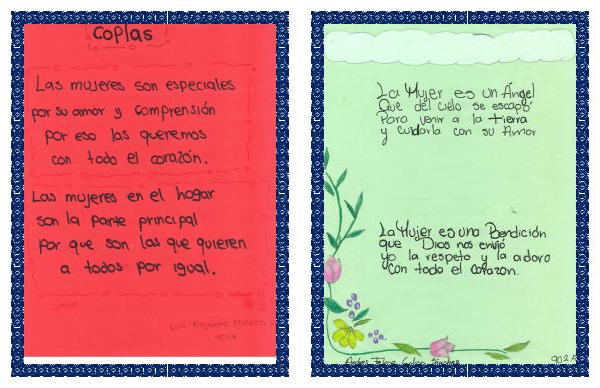 Coplas
Las mujeres son especiales
por su amor y comprensión
por eso las queremos
con todo el corazón.
Las mujeres en el hogar
son la parte principal
por que son las que quieren
a todos por igual.
Luis Alejandro
902A
La Mujer es un Ángel
Que del cielo se escapó
Para venir a la tierra
y cuidarla con su Amor
La Mujer es una Bendición
que Dios nos envió
yo la respeto y la adoro
con todo el corazon.
Andres Felipe
902A